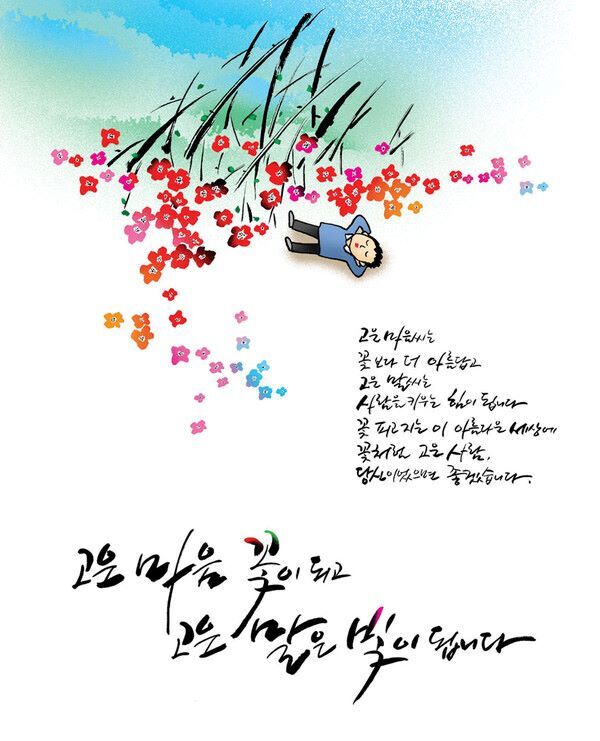 고운 마음씨는
꽃보다 더 아름답고
고운 말씨는
사람을 키우는 힘이 됩니다
꽃 피고 지는 이 아름다운 세상에
꽃처럼 고운 사람,
당신이었으면 좋겠습니다.
고운 마음 꽃이 되고
고운 말은 빛이 됩니다